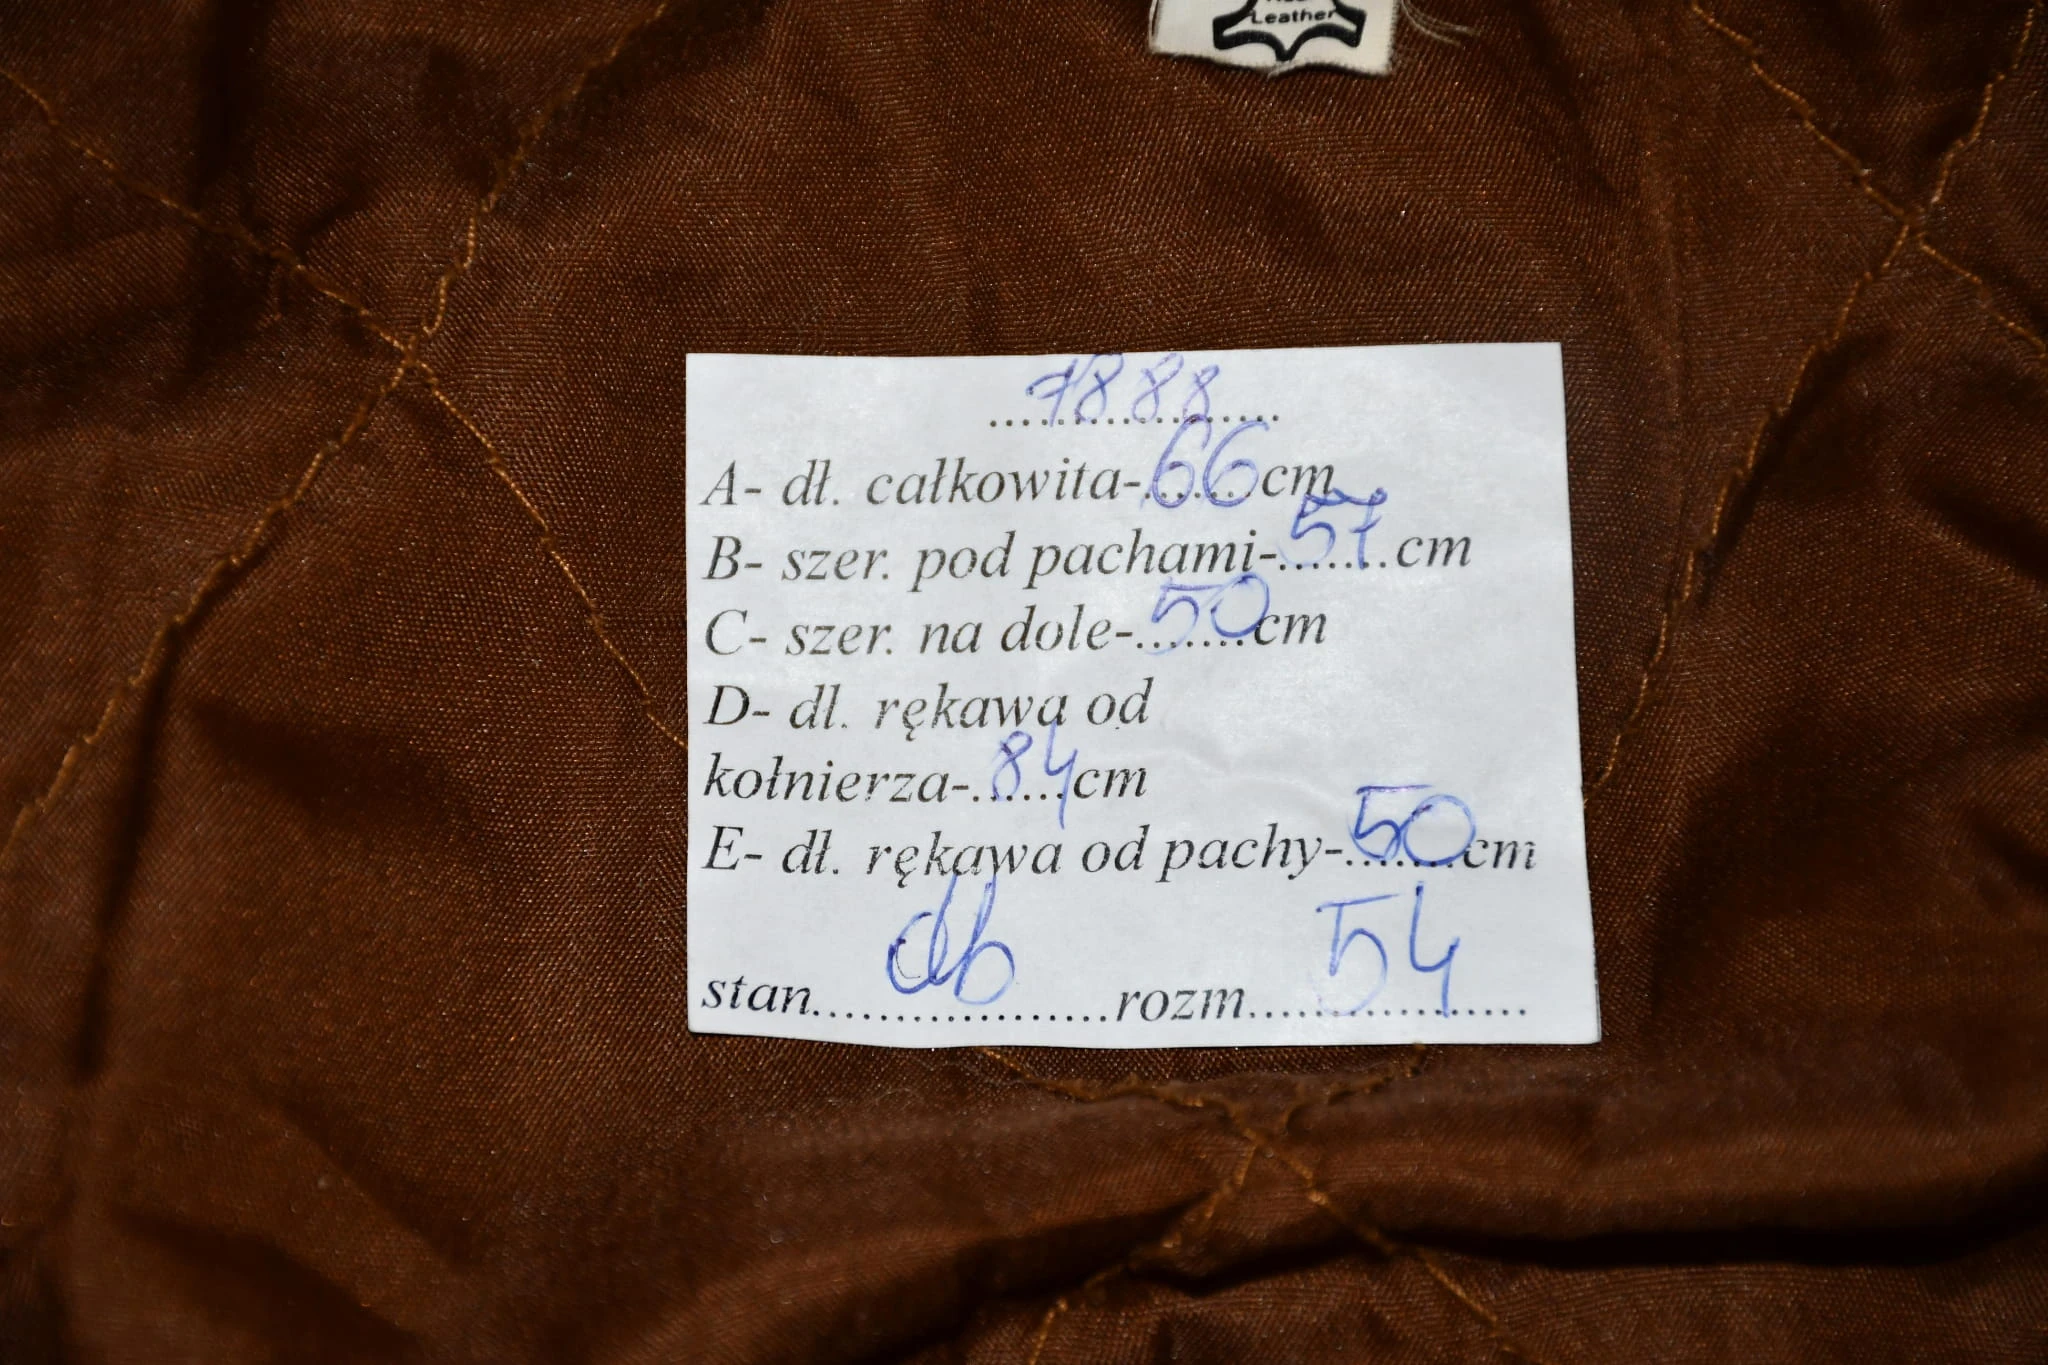 Leather
7888
A- dł. całkowita-66cm
B- szer. pod pachami-57cm
C- szer. na dole-50cm
D- dł. rękawa od
kołnierza-84cm
E- dł. rękawa od pachy-50cm
stan db rozm 54